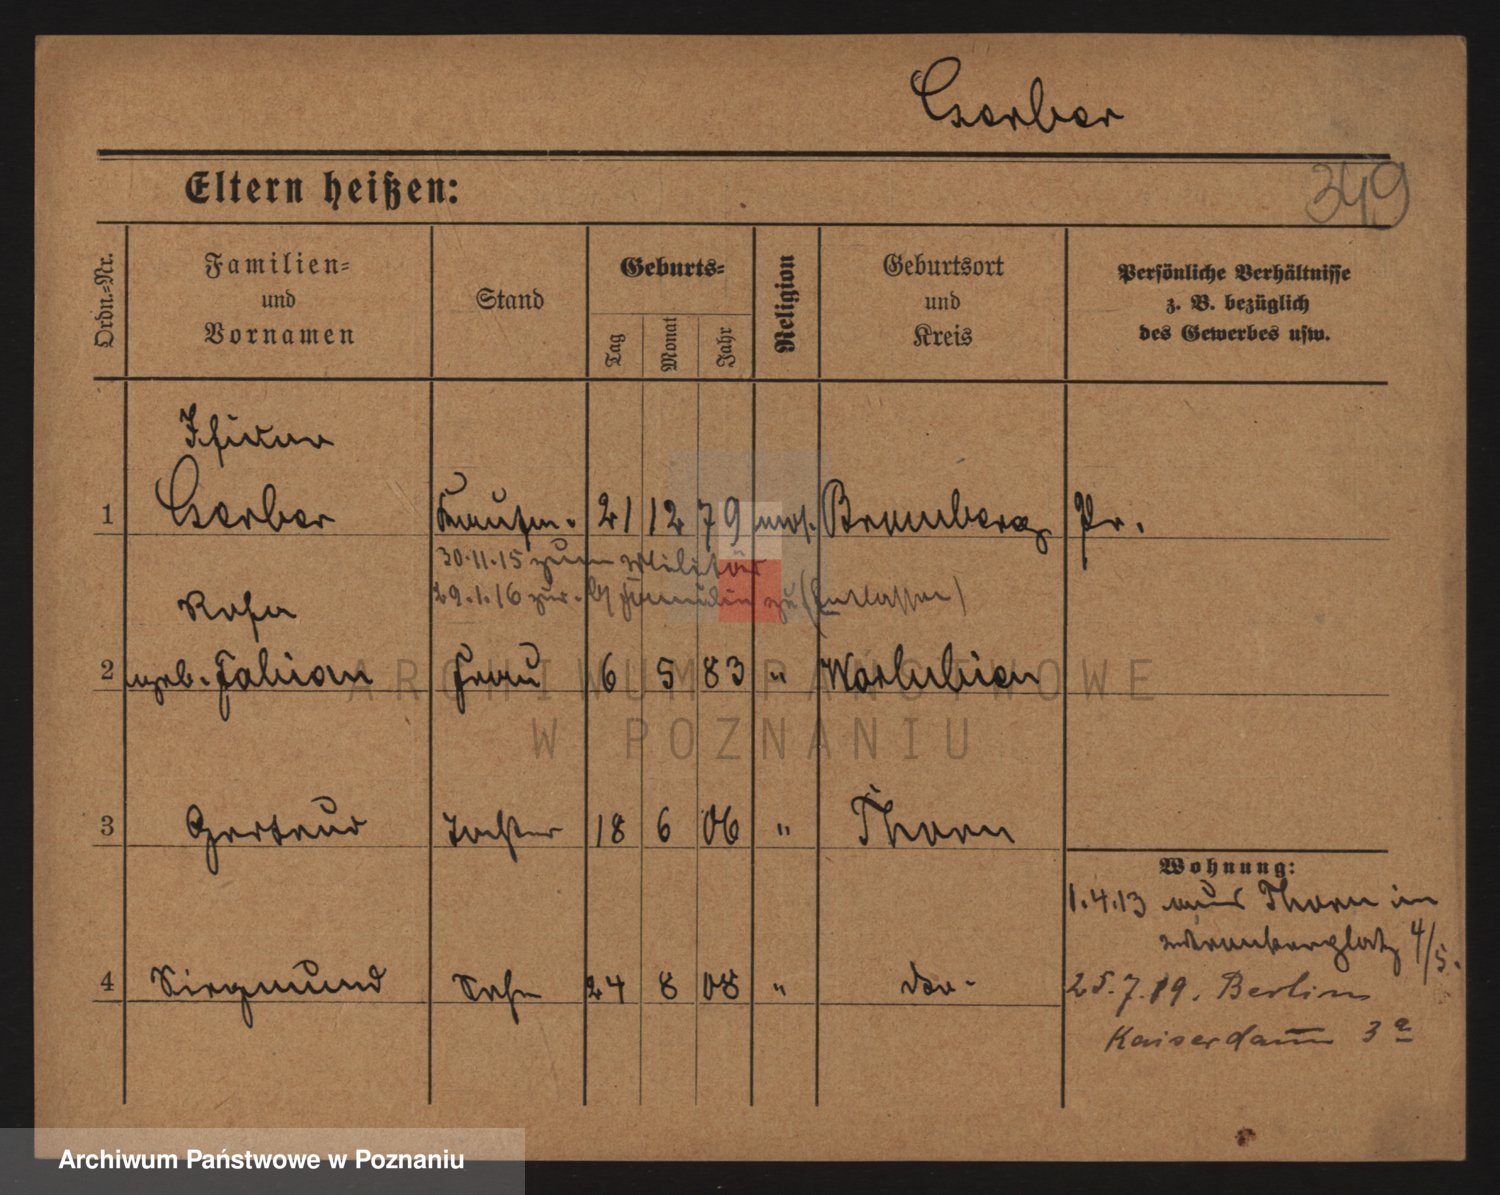 Gerber
349
Eltern heißen:
Ordn.-Nr.
Familien-
und
Vornamen
Stand
Geburts-
Tag
Monat
Jahr
Religion
Geburtsort
und
Kreis
Persönliche Verhältnisse
z. B. bezüglich
des Gewerbes usw.
Isidor
1 Gerber Kaufm. 21 12 79 mos. Bromberg Pr.
30.11.15 zum Militär
29.1.16 zur. (Entlassen)
Rosa
2 geb. Fabian Frau 6 5 83 " Warlubien
ARCHIWUM PAŃSTWOWE
W POZNANIU
3 Gertrud Tochter 18 6 06 " Thorn
Wohnung:
1.4.13 aus Thorn in
4/5.
4 Siegmund Sohn 24 8 08 " do.
25.7.19. Berlin
Kaiserdamm 3a
Archiwum Państwowe w Poznaniu